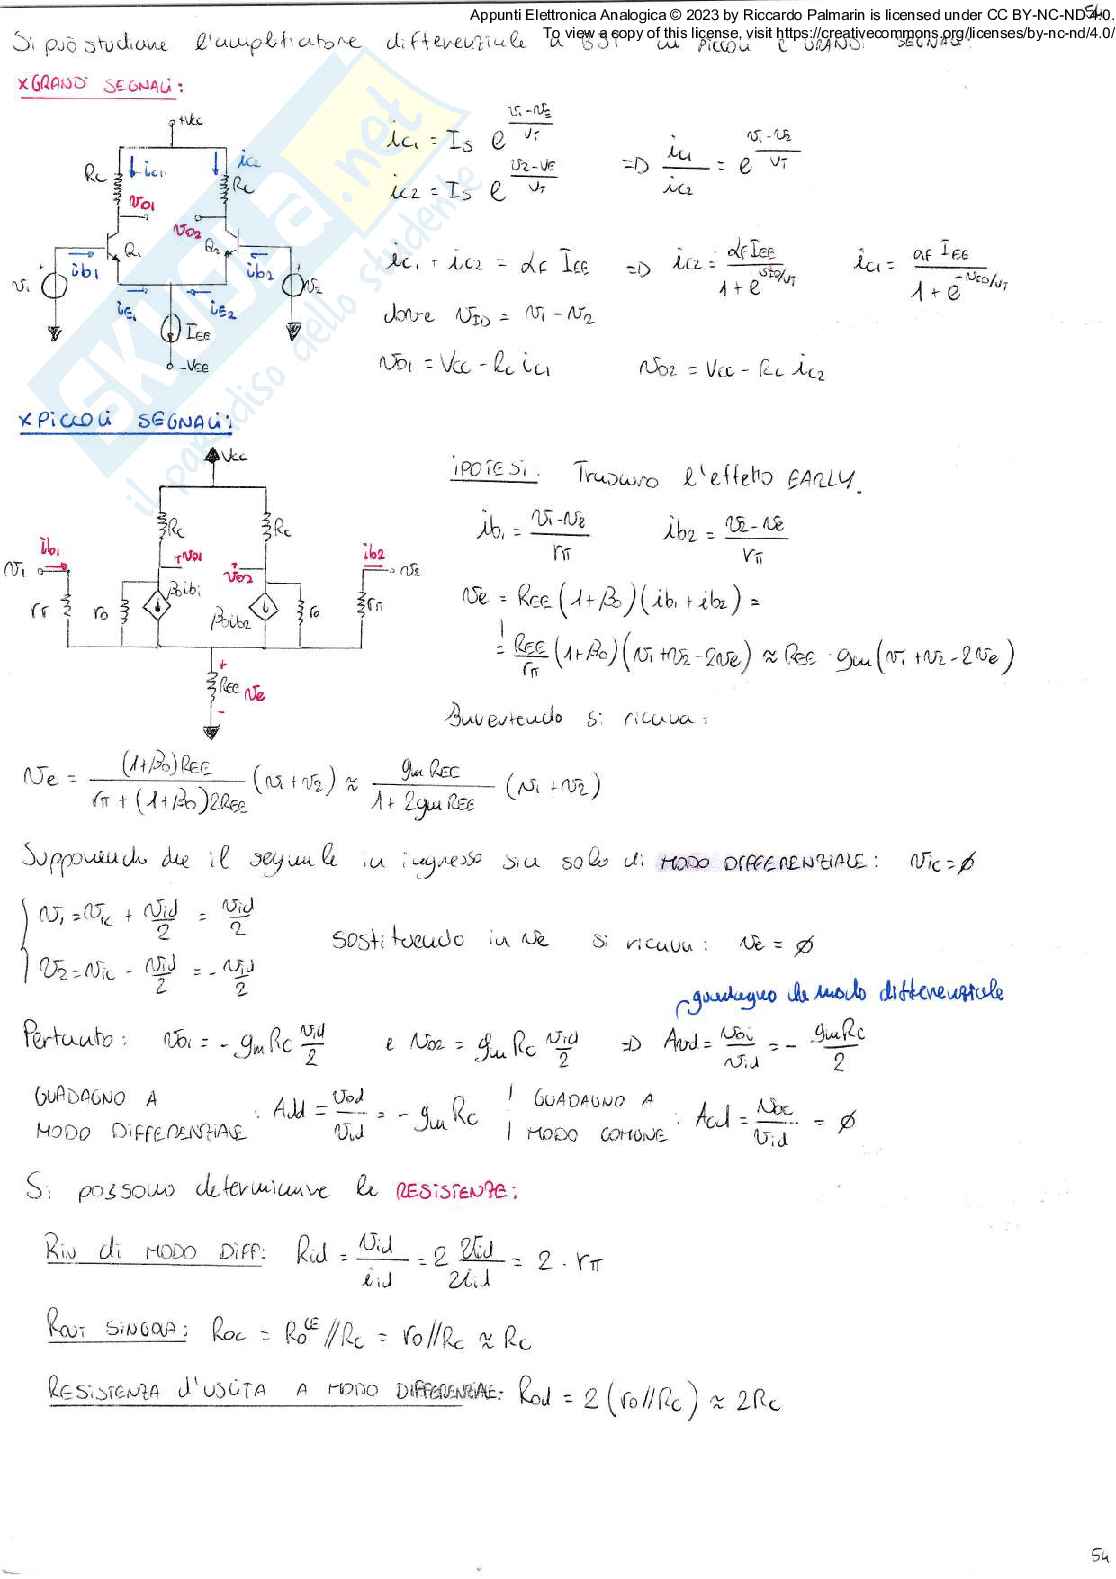 Appunti Elettronica Analogica © 2023 by Riccardo Palmarin is licensed under CC BY-NC-ND 4.0.
To view a copy of this license, visit https://creativecommons.org/licenses/by-nc-nd/4.0/
54
Si può studiare l'amplificatore differenziale a BJT in piccoli e grandi segnali.
x GRANDI SEGNALI:
+Vcc
Rc ic1 ic2 Rc
vo1 vo2
Q1 Q2
v1 ib1 ib2 v2
iE1 iE2
IEE
-VEE
ic1 = Is e^((v1-vE)/vT)
ic2 = Is e^((v2-vE)/vT)
=> ic1/ic2 = e^((v1-v2)/vT)
ic1 + ic2 = αF IEE => ic2 = αF IEE/(1+e^(vID/vT)) ic1 = αF IEE/(1+e^(-vID/vT))
dove vID = v1 - v2
vo1 = Vcc - Rc ic1 vo2 = Vcc - Rc ic2
SKUOLA.net
il paradiso dello studente
x PICCOLI SEGNALI:
Vcc
Rc Rc
ib1 vo1 vo2 ib2
v1 v2
rπ ro β0ib1 β0ib2 ro rπ
+
REE ve
-
IPOTESI. Trascuro l'effetto EARLY.
ib1 = (v1-ve)/rπ ib2 = (v2-ve)/rπ
ve = REE(1+β0)(ib1+ib2) =
= REE/rπ (1+β0)(v1+v2-2ve) ≈ REE · gm(v1+v2-2ve)
Invertendo si ricava:
ve = (1+β0)REE/(rπ+(1+β0)2REE) (v1+v2) ≈ gm REE/(1+2gm REE) (v1+v2)
Supponendo che il segnale in ingresso sia solo di MODO DIFFERENZIALE: vic=∅
v1 = vic + vid/2 = vid/2
v2 = vic - vid/2 = -vid/2
sostituendo in ve si ricava: ve = ∅
guadagno di modo differenziale
Pertanto: vo1 = -gm Rc vid/2 e vo2 = gm Rc vid/2 => Avd = vo1/vid = - gmRc/2
GUADAGNO A MODO DIFFERENZIALE: Add = vod/vid = -gm Rc
GUADAGNO A MODO COMUNE: Acd = voc/vid = ∅
Si possono determinare le RESISTENZE:
Rin di MODO DIFF: Rid = vid/iid = 2 vid/2iid = 2 · rπ
Rout SINGOLA: Roc = Ro^CE // Rc = ro//Rc ≈ Rc
RESISTENZA d'USCITA A MODO DIFFERENZIALE: Rod = 2(ro//Rc) ≈ 2Rc
54